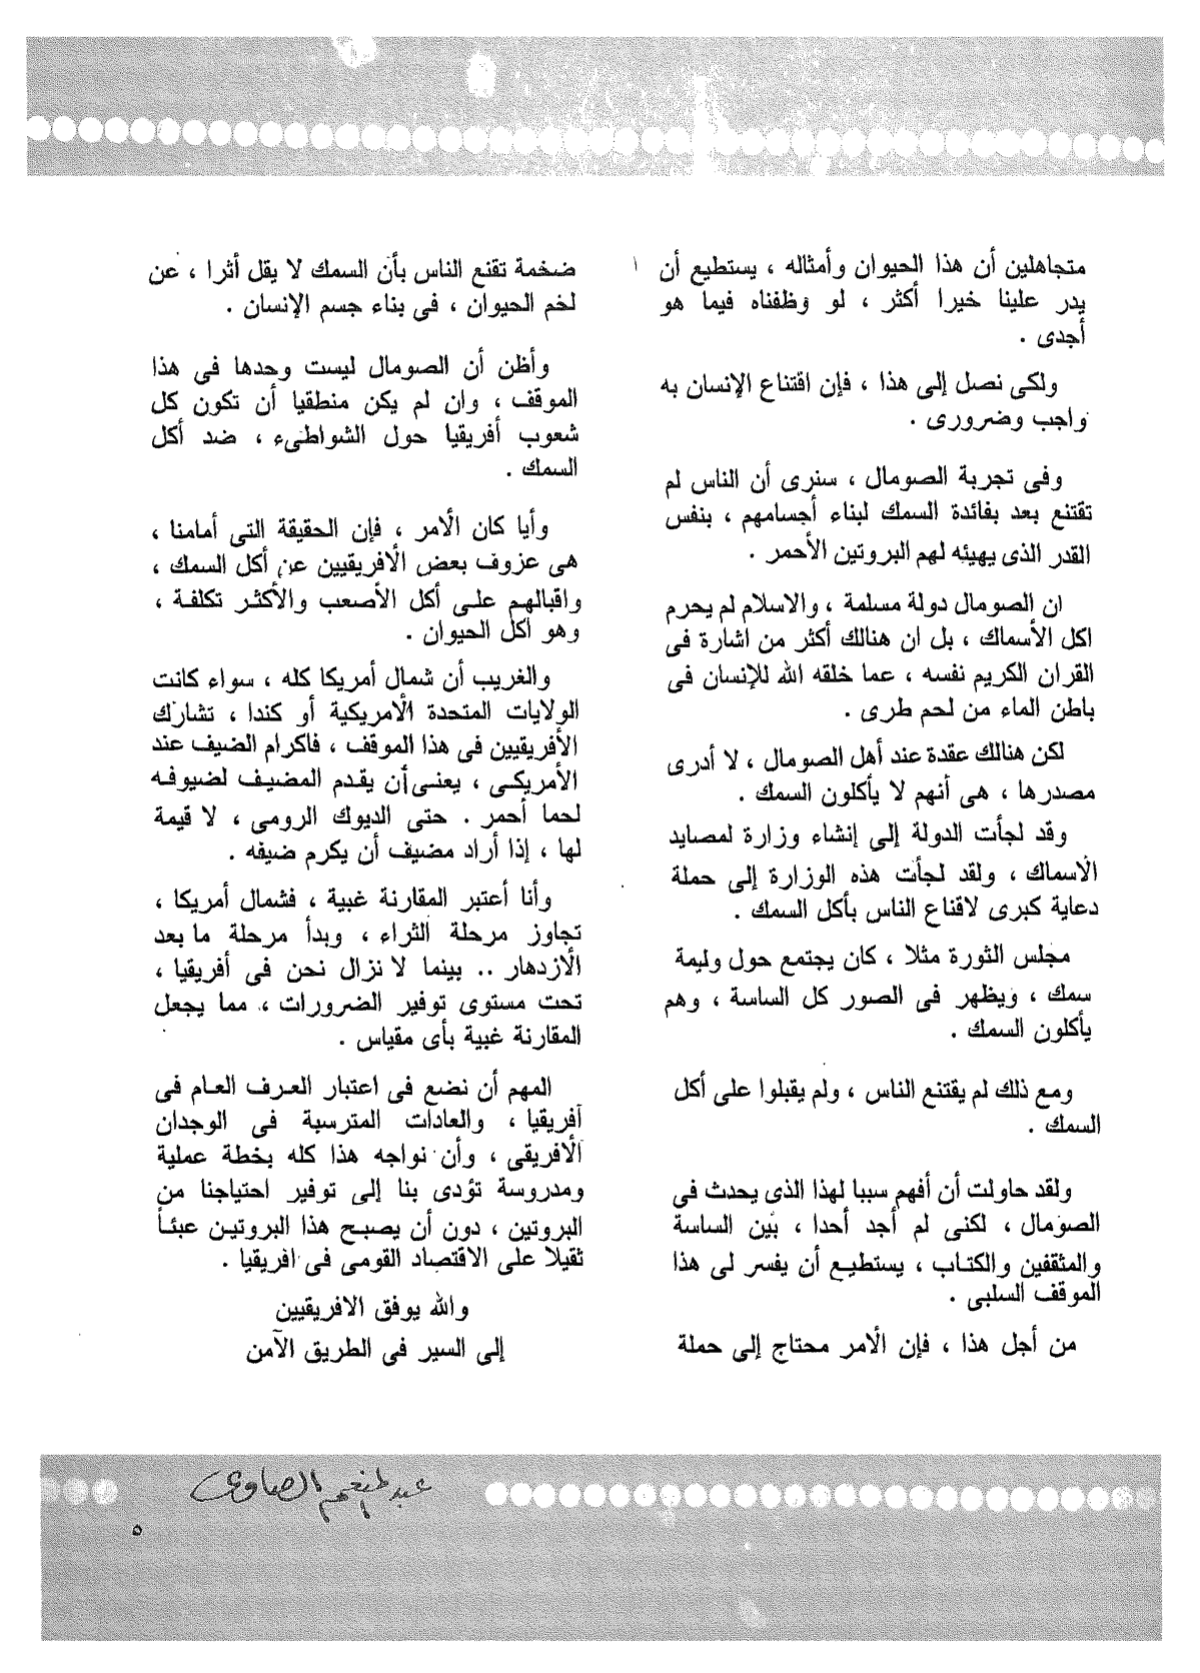 متجاهلين أن هذا الحيوان وأمثاله ، يستطيع أن
يدر علينا خيرا أكثر ، لو وظفناه فيما هو
أجدى .
ولكى نصل إلى هذا ، فإن اقتناع الإنسان به
واجب وضرورى .
وفى تجربة الصومال ، سنرى أن الناس لم
تقتنع بعد بفائدة السمك لبناء أجسامهم ، بنفس
القدر الذى يهيئه لهم البروتين الأحمر .
ان الصومال دولة مسلمة ، والاسلام لم يحرم
اكل الأسماك ، بل ان هنالك أكثر من اشارة فى
القران الكريم نفسه ، عما خلقه الله للإنسان فى
باطن الماء من لحم طرى .
لكن هنالك عقدة عند أهل الصومال ، لا أدرى
مصدرها ، هى أنهم لا يأكلون السمك .
وقد لجأت الدولة إلى إنشاء وزارة لمصايد
الأسماك ، ولقد لجأت هذه الوزارة إلى حملة
دعاية كبرى لاقناع الناس بأكل السمك .
مجلس الثورة مثلا ، كان يجتمع حول وليمة
سمك ، ويظهر فى الصور كل الساسة ، وهم
يأكلون السمك .
ومع ذلك لم يقتنع الناس ، ولم يقبلوا على أكل
السمك .
ولقد حاولت أن أفهم سببا لهذا الذى يحدث فى
الصومال ، لكنى لم أجد أحدا ، بين الساسة
والمثقفين والكتاب ، يستطيع أن يفسر لى هذا
الموقف السلبى .
من أجل هذا ، فإن الأمر محتاج إلى حملة
ضخمة تقنع الناس بأن السمك لا يقل أثرا ، عن
لحم الحيوان ، فى بناء جسم الإنسان .
وأظن أن الصومال ليست وحدها فى هذا
الموقف ، وان لم يكن منطقيا أن تكون كل
شعوب أفريقيا حول الشواطىء ، ضد أكل
السمك .
وأيا كان الأمر ، فإن الحقيقة التى أمامنا ،
هى عزوف بعض الأفريقيين عن أكل السمك ،
واقبالهم على أكل الأصعب والأكثر تكلفة ،
وهو أكل الحيوان .
والغريب أن شمال أمريكا كله ، سواء كانت
الولايات المتحدة الأمريكية أو كندا ، تشارك
الأفريقيين فى هذا الموقف ، فاكرام الضيف عند
الأمريكى ، يعنى أن يقدم المضيف لضيوفه
لحما أحمر . حتى الديوك الرومى ، لا قيمة
لها ، إذا أراد مضيف أن يكرم ضيفه .
وأنا أعتبر المقارنة غبية ، فشمال أمريكا ،
تجاوز مرحلة الثراء ، وبدأ مرحلة ما بعد
الأزدهار .. بينما لا نزال نحن فى أفريقيا ،
تحت مستوى توفير الضرورات ، مما يجعل
المقارنة غبية بأى مقياس .
المهم أن نضع فى اعتبار العرف العام فى
أفريقيا ، والعادات المترسبة فى الوجدان
الأفريقى ، وأن نواجه هذا كله بخطة عملية
ومدروسة تؤدى بنا إلى توفير احتياجنا من
البروتين ، دون أن يصبح هذا البروتين عبئاً
ثقيلا على الاقتصاد القومى فى افريقيا .
والله يوفق الافريقيين
إلى السير فى الطريق الآمن
عبد المنعم الصاوى
٥